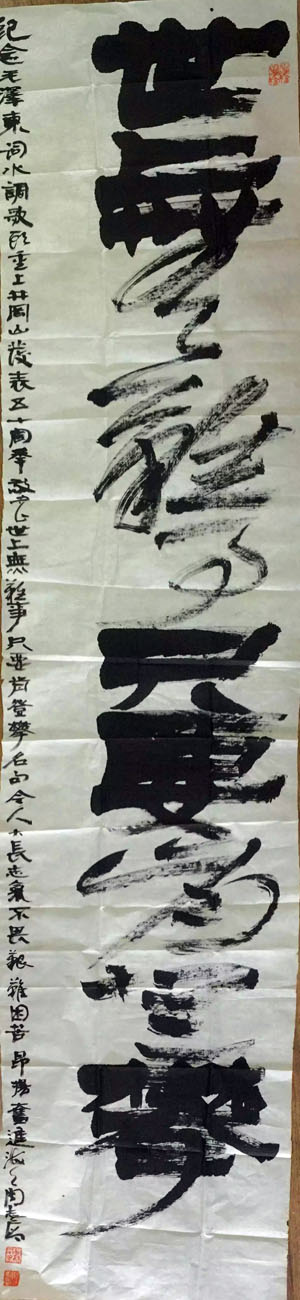 世上無難事只要肯登攀
紀念毛澤東詞水調歌頭重上井岡山發表五十周年 世上無難事只要肯登攀名句令人大長志氣不畏艱難困苦昂揚奮進